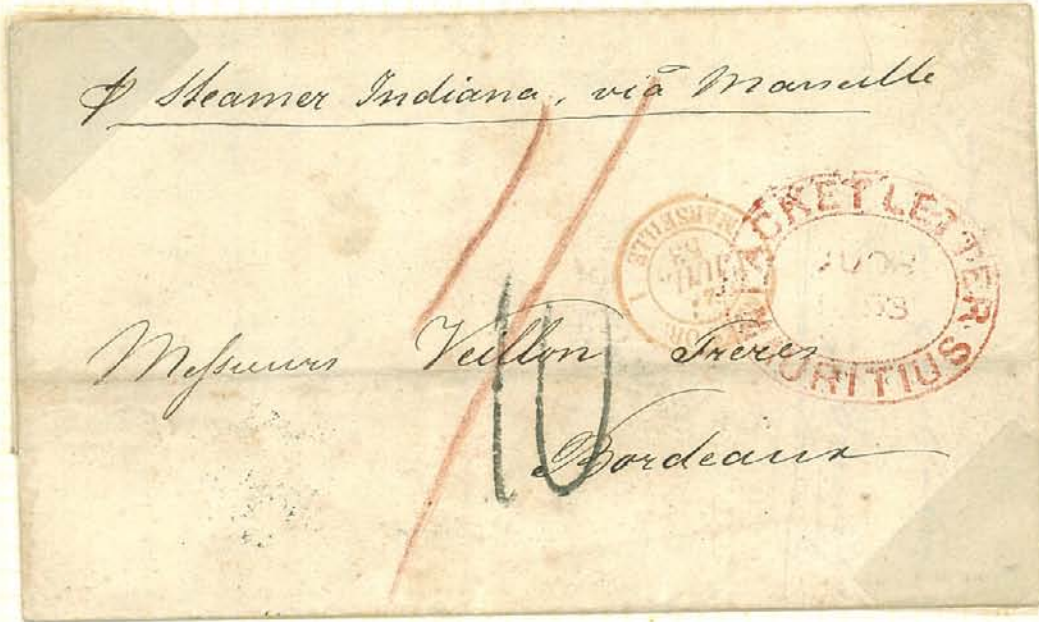 p Steamer Indiana, viâ Marseille
PACKET LETTER
MAURITIUS
MARSEILLE
Messieurs Veillon Freres
10
Bordeaux